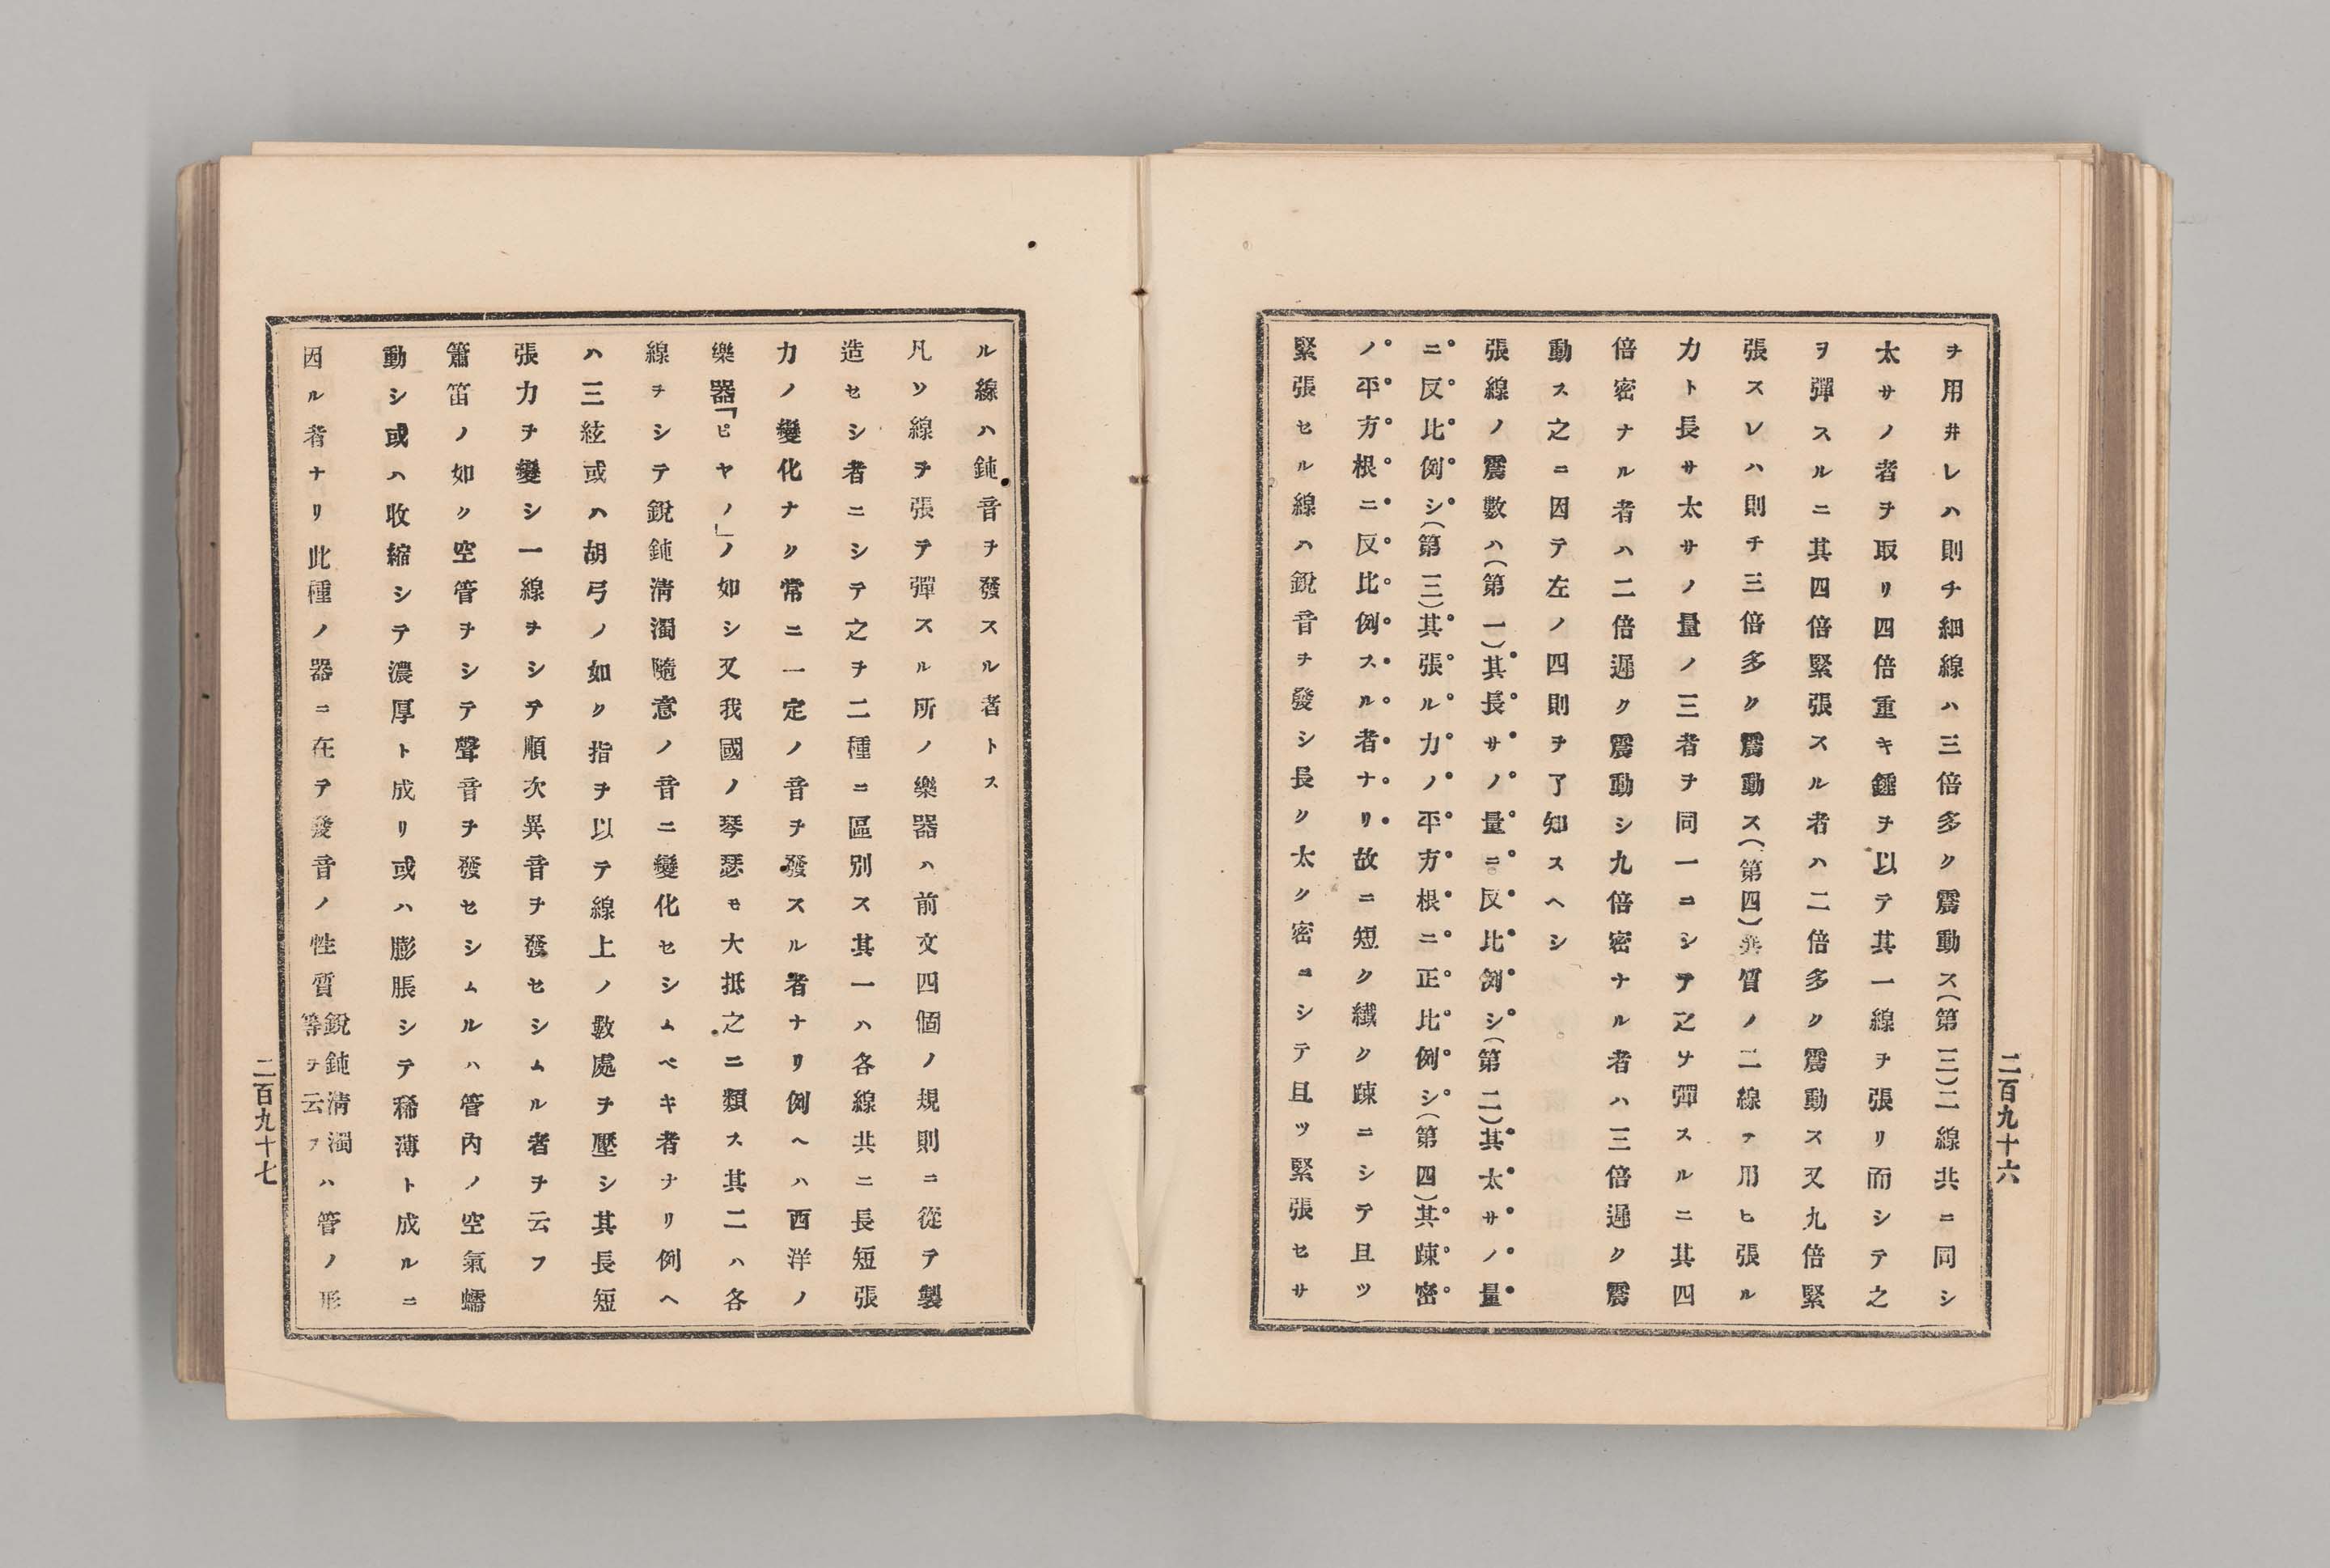 ヲ用井レハ則チ細線ハ三倍多ク震動ス(第三)二線共ニ同シ
太サノ者ヲ取リ四倍重キ錘ヲ以テ其一線ヲ張リ而シテ之
ヲ彈スルニ其四倍緊張スル者ハ二倍多ク震動ス又九倍緊
張スレハ則チ三倍多ク震動ス(第四)異質ノ二線ヲ用ヒ張ル
力ト長サ太サノ量ノ三者ヲ同一ニシテ之ヲ彈スルニ其四
倍密ナル者ハ二倍遲ク震動シ九倍密ナル者ハ三倍遲ク震
動ス之ニ因テ左ノ四則ヲ了知スヘシ
張線ノ震數ハ(第一)其長サノ量ニ反比例シ(第二)其太サノ量
ニ反比例シ(第三)其張ル力ノ平方根ニ正比例シ(第四)其踈密
ノ平方根ニ反比例スル者ナリ故ニ短ク纎ク踈ニシテ且ツ
緊張セル線ハ銳音ヲ發シ長ク太ク密ニシテ且ツ緊張セサ
二百九十六
ル線ハ鈍音ヲ發スル者トス
凡ソ線ヲ張テ彈スル所ノ樂器ハ前文四個ノ規則ニ從テ製
造セシ者ニシテ之ヲ二種ニ區別ス其一ハ各線共ニ長短張
力ノ變化ナク常ニ一定ノ音ヲ發スル者ナリ例ヘハ西洋ノ
樂器「ピヤノ」ノ如シ又我國ノ琴瑟モ大抵之ニ類ス其二ハ各
線ヲシテ銳鈍淸濁隨意ノ音ニ變化セシムベキ者ナリ例ヘ
ハ三絃或ハ胡弓ノ如ク指ヲ以テ線上ノ數處ヲ壓シ其長短
張力ヲ變シ一線ヲシテ順次異音ヲ發セシムル者ヲ云フ
簫笛ノ如ク空管ヲシテ聲音ヲ發セシムルハ管內ノ空氣蠕
動シ或ハ收縮シテ濃厚ト成リ或ハ膨脹シテ稀薄ト成ルニ
因ル者ナリ此種ノ器ニ在テ發音ノ性質銳鈍淸濁等ヲ云フハ管ノ形
二百九十七